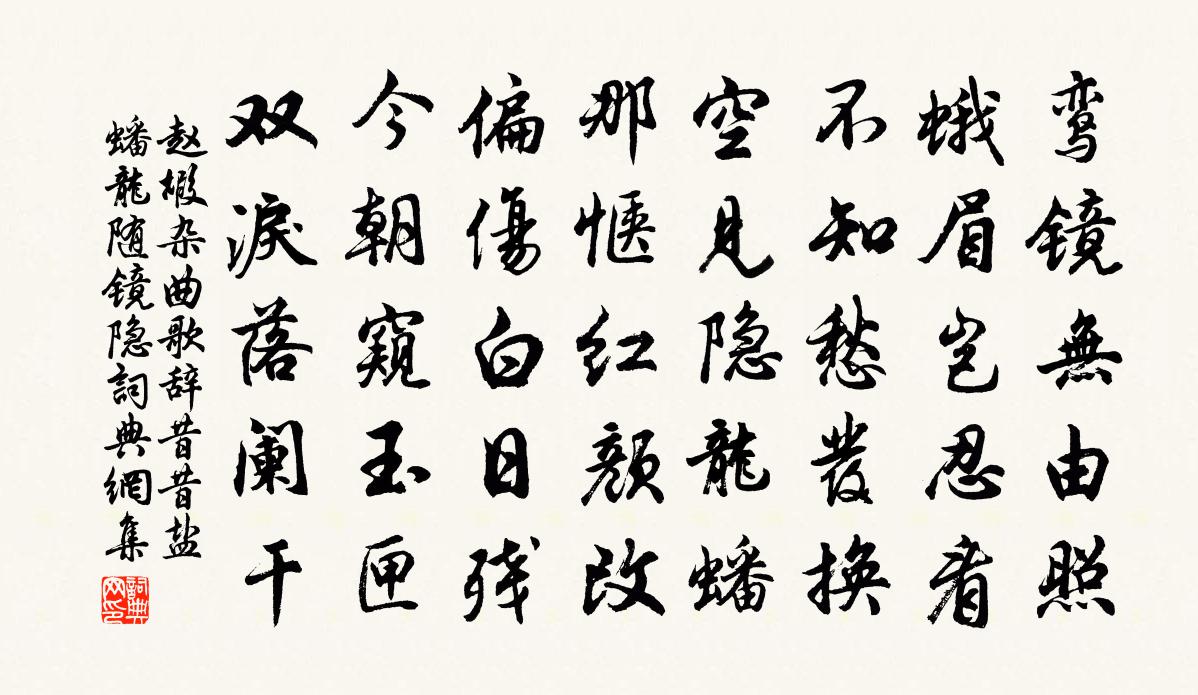 鸾镜無由照
蛾眉岂忍看
不知愁發换
空見隐龍蟠
那惬红颜改
偏傷白日残
今朝窺玉匣
双淚落阑干
赵嘏杂曲歌辞昔昔盐
蟠龍随镜隐詞典網集
詞典网印